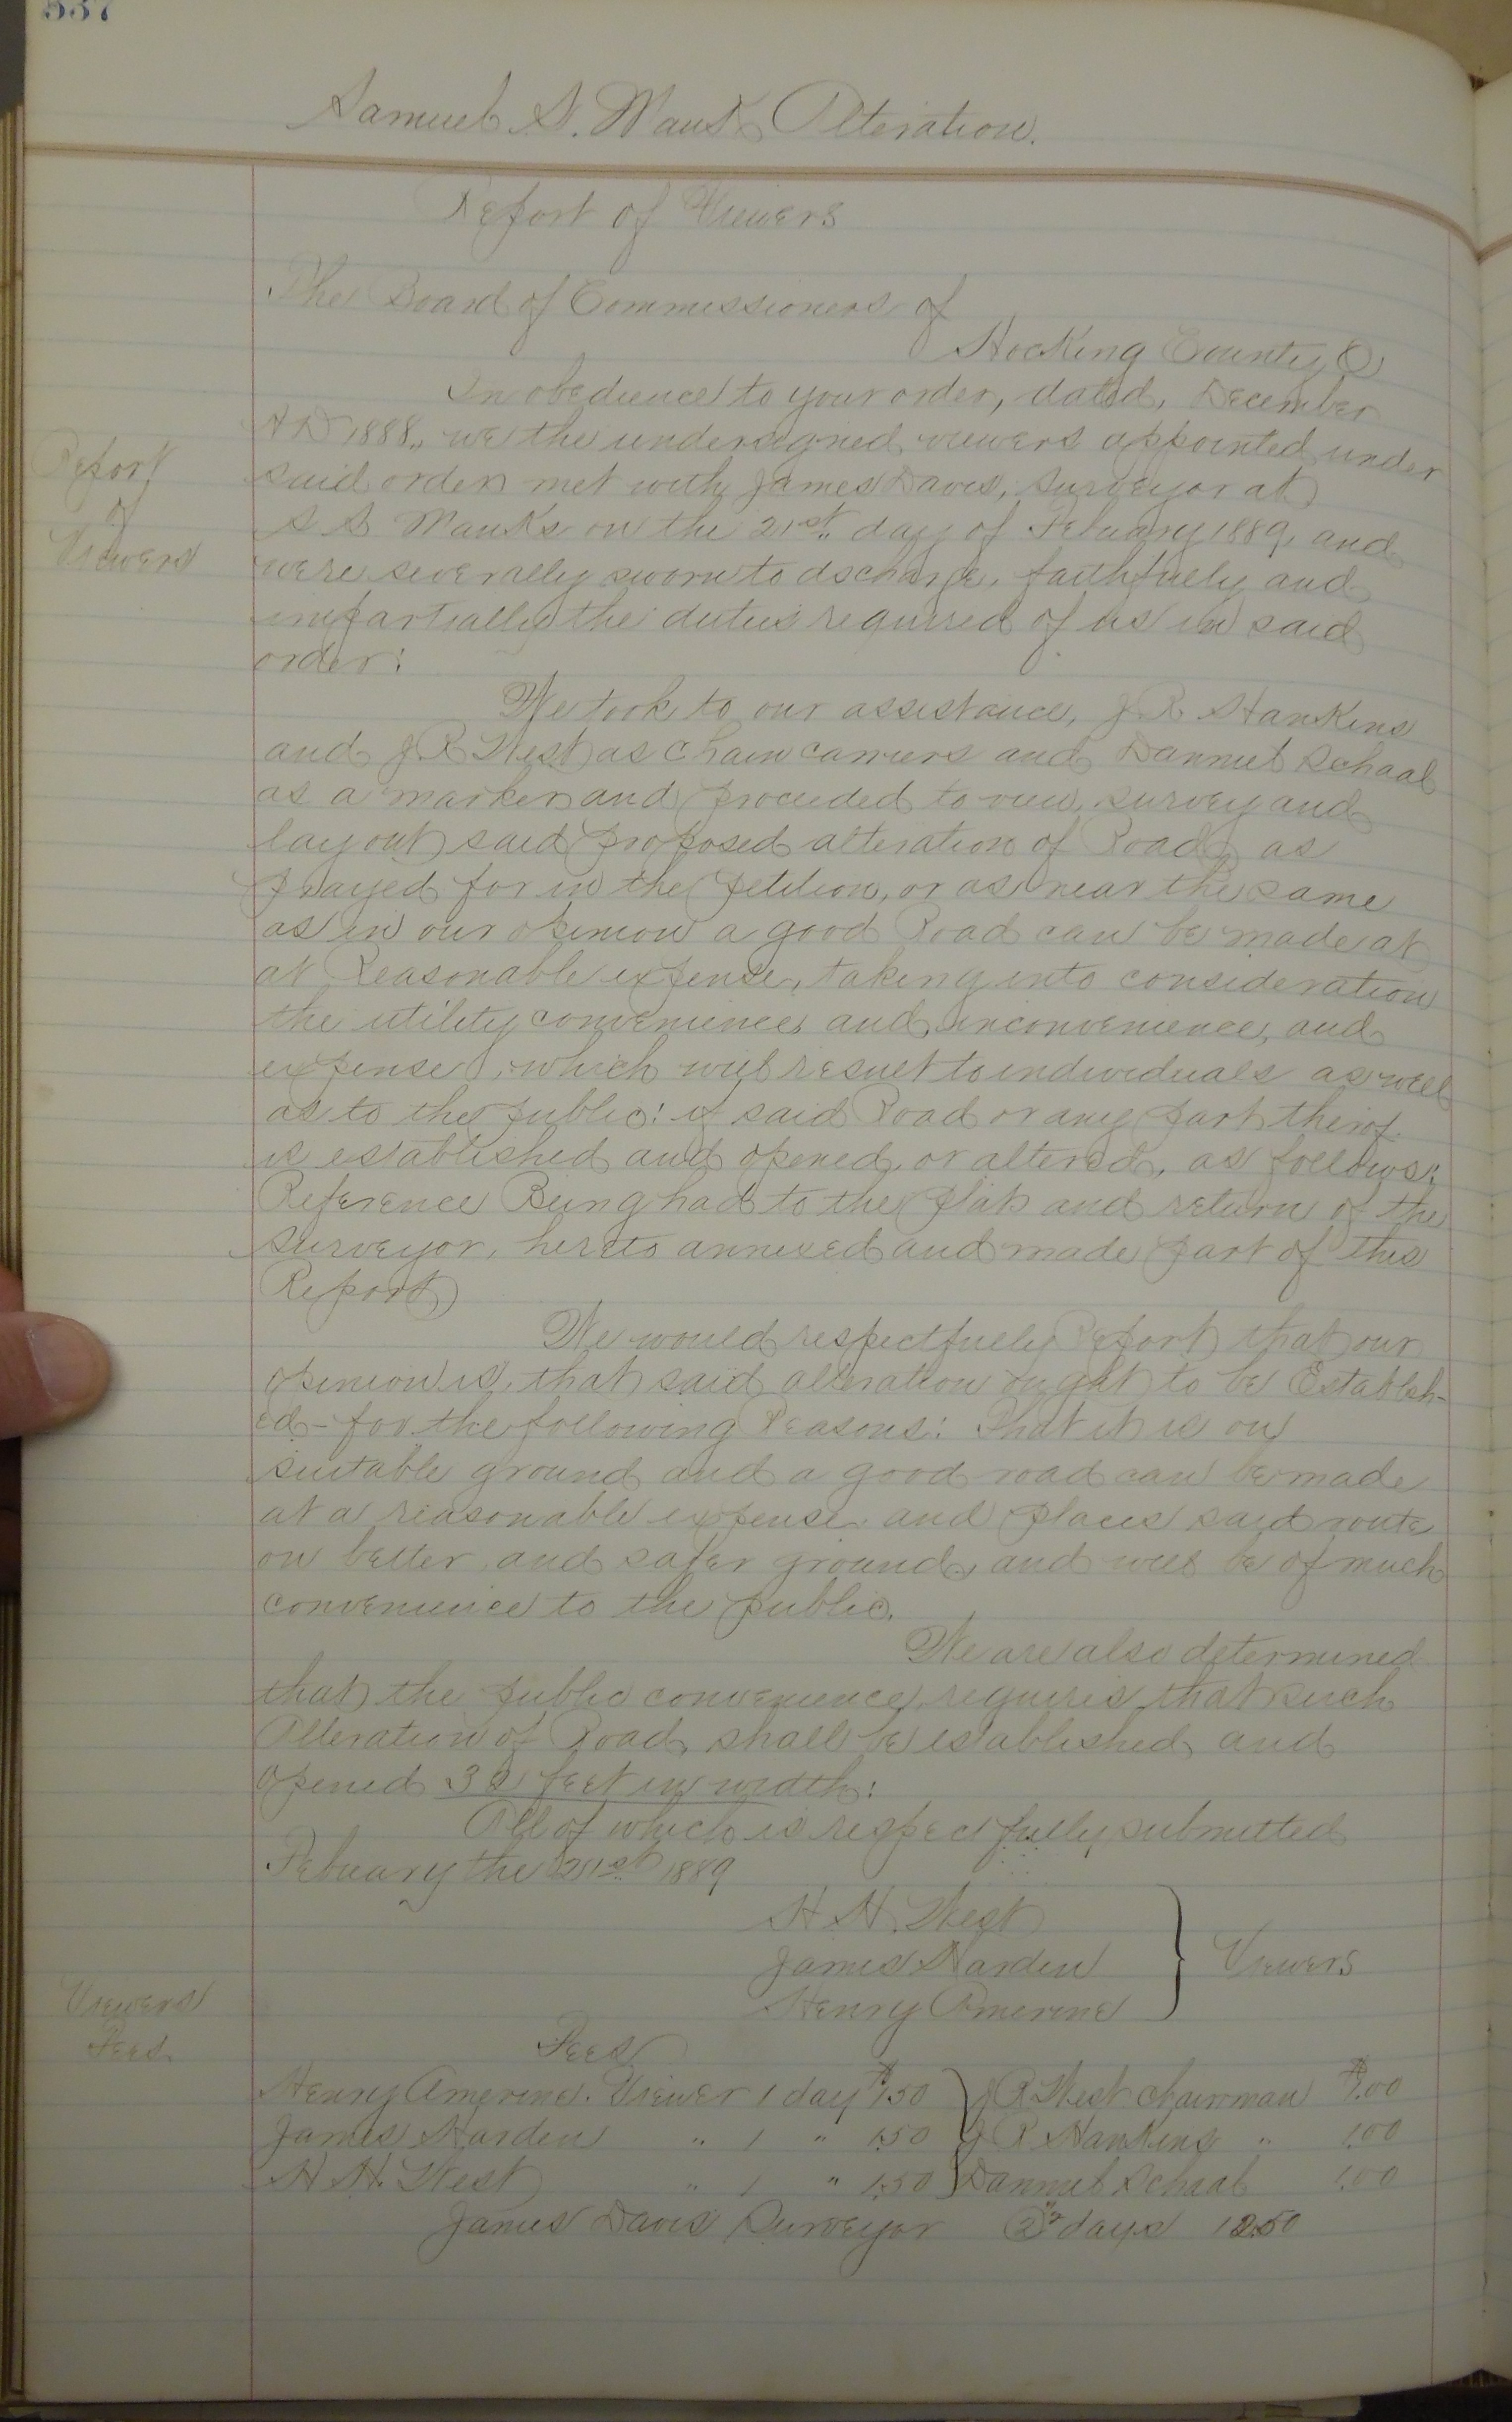 557
Samuel S. Mauks Alteration.
Report of Viewers
The Board of Commissioners of
Hocking County, O
In obedience to your order, dated, December
A D 1888., we the undersigned viewers appointed under
said order met with James Davis, Surveyor at
S S Mauks on the 21st. day of Febuary 1889, and
were severally sworn to dscharge, faithfully and
impartially the duties required of us in said
order:
Report
of
Viewers
We took to our assistance, J. R. Hankins
and J. R West as chain carriers and Danniel Schaal
as a marker and proceeded to view, survey and
lay out said proposed alteration of Road, as
prayed for in the petition, or as near the same
as in our opinion a good Road can be made at
at Reasonable expense, taking into consideration
the utility convenience, and, inconvenience, and
expense, which will result to individuals as well
as to the public: if said Road or any part therof
is established and opened, or altered, as follows:
Reference Being had to the plat and return of the
Surveyor, hereto annexed and made part of this
Report
We would respectfully Report that our
opinion is, that said alteration ought to be Establish-
ed - for the following Reasons: That it is on
suitable ground and a good road can be made
at a reasonable expense and places said route
on better and safer ground, and will be of much
convenience to the public.
We are also determined
that the public convenience, requires that such
Alteration of Road, shall be established and
opened 30 feet in width:
All of which is respectfully submitted
Febuary the 21st 1889
H. H. West
James Harden } Viewers
Henry Amerine
Viewers
Fees
Fees
Henry Amerine. Viewer 1 day $1.50 } J R West chainman $1.00
James Harden " 1 " 1.50 } J R Hankins " 1.00
H. H. West " 1 " 1.50 } Danniel Schaal 1.00
James Davis Surveyor 2 1/2 days 12.50